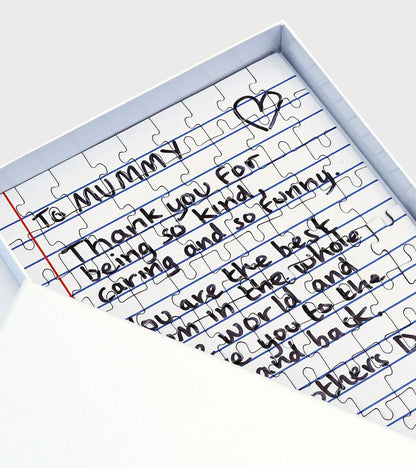 To MUMMY
Thank you For
being so kind,
caring and so funny.
You are the best
in the whole
world and
you to the
and back.